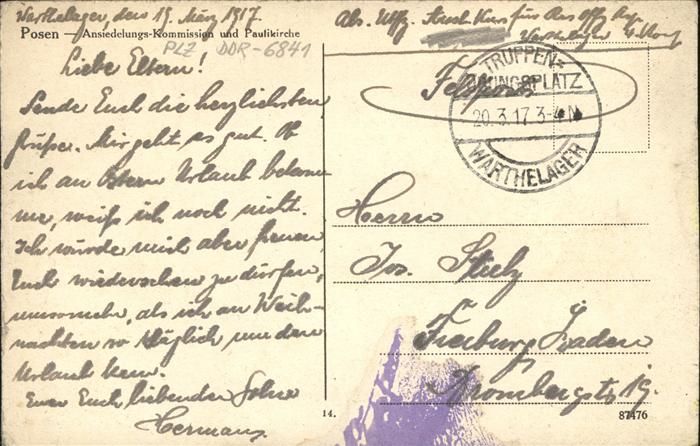 Warthelager, den 19. März 1917.
Posen — Ansiedelungs-Kommission und Paulikirche
PLZ DDR-6841
Liebe Eltern!
Sende Euch die herzlichsten
Grüße. Mir geht es gut. Ob
ich an Ostern Urlaub bekom
me, weiß ich noch nicht.
Ich würde mich aber freuen
Euch wiedersehen zu dürfen,
umsomehr, als ich an Weih-
nachten so kläglich um den
Urlaub kam.
Euer Euch liebender Sohn
Hermann.
Abs. Uffz. Kurs für
Warthelager
Feldpost
TRUPPEN-
ÜBUNGSPLATZ
20.3.17.3-4 N
WARTHELAGER
Herrn
Jos. Stelz
Freiburg Baden
Krombergstr. 19.
14.
87476